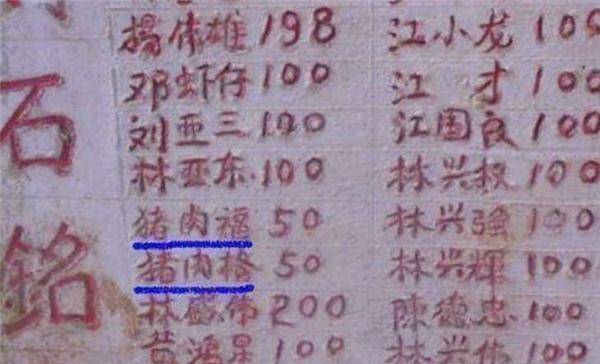 石
銘
揚伟雄 198 江小龙 100
邓虾仔 100 江 才 100
刘亚三 100 江国良 100
林亚东 100 林兴权 100
猪肉福 50 林兴强 100
猪肉格 50 林兴輝 100
林 伟 200 陳德忠 100
黄鸿星 100 林兴 100